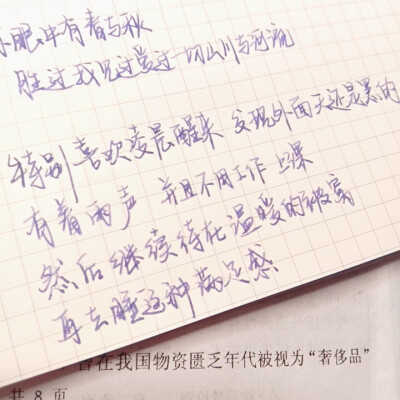 眼中有春与秋
胜过我见过爱过一切山川与河流
特别喜欢凌晨醒来 发现外面天还是黑的
有着雨声 并且不用工作 上课
然后继续待在温暖的被窝
再去睡这种满足感
曾在我国物资匮乏年代被视为“奢侈品”
共 8 页